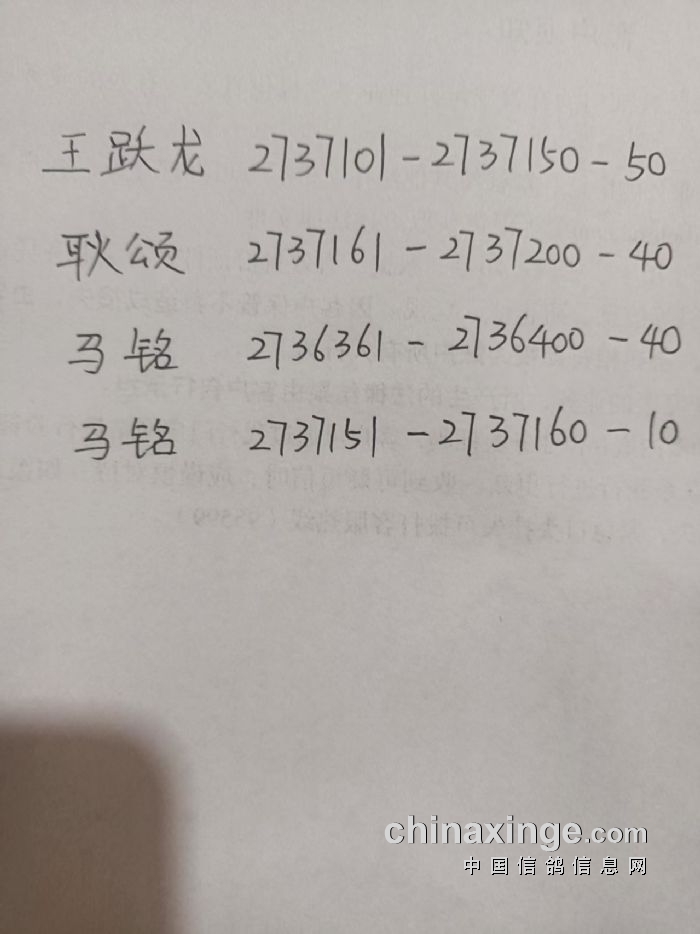 王跃龙 2737101-2737150-50
耿颂 2737161-2737200-40
马铭 2736361-2736400-40
马铭 2737151-2737160-10
chinaxinge.com
中国信鸽信息网